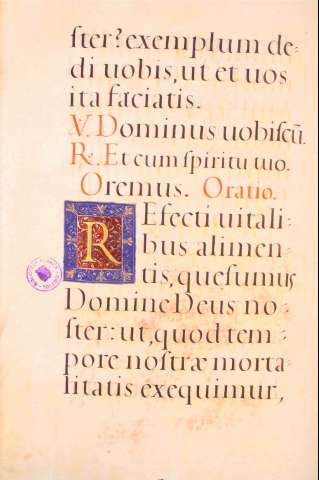 ster? exemplum de-
di uobis, ut et uos
ita faciatis.
V. Dominus uobiscū.
R. Et cum spiritu tuo.
Oremus. Oratio.
REfecti uitali-
bus alimen-
tis, quesumus
Domine Deus no-
ster: ut, quod tem-
pore nostræ morta-
litatis exequimur,